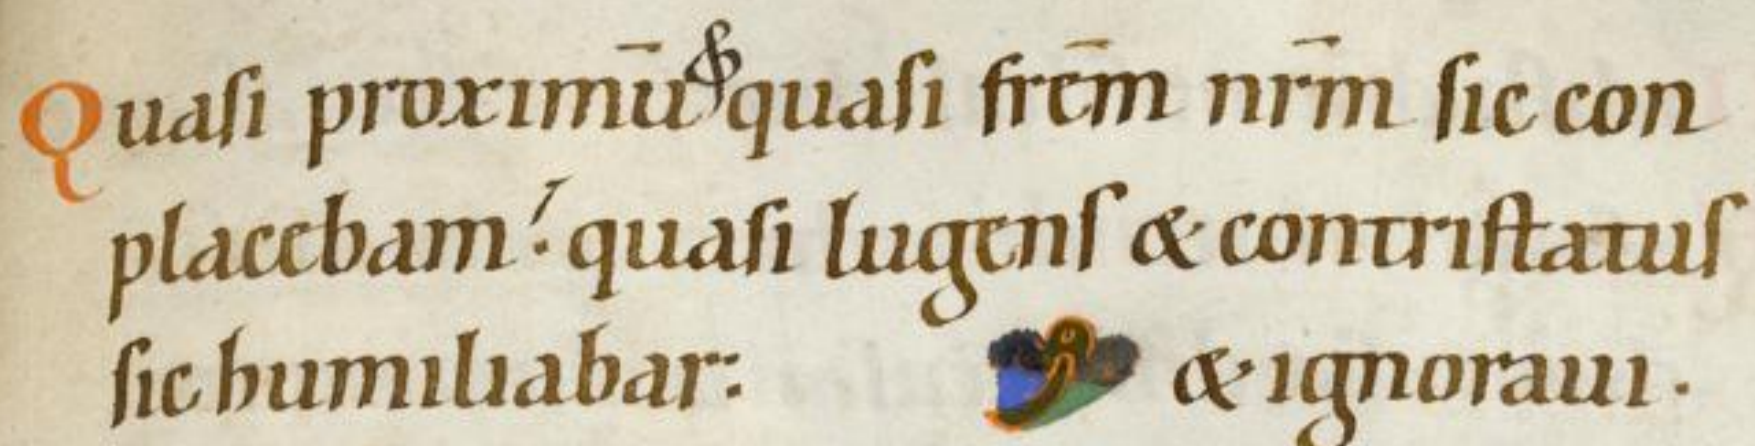 Quasi proximū & quasi frēm nr̄m sic con
placebam: quasi lugens & contristatus
sic humiliabar: & ignoraui.